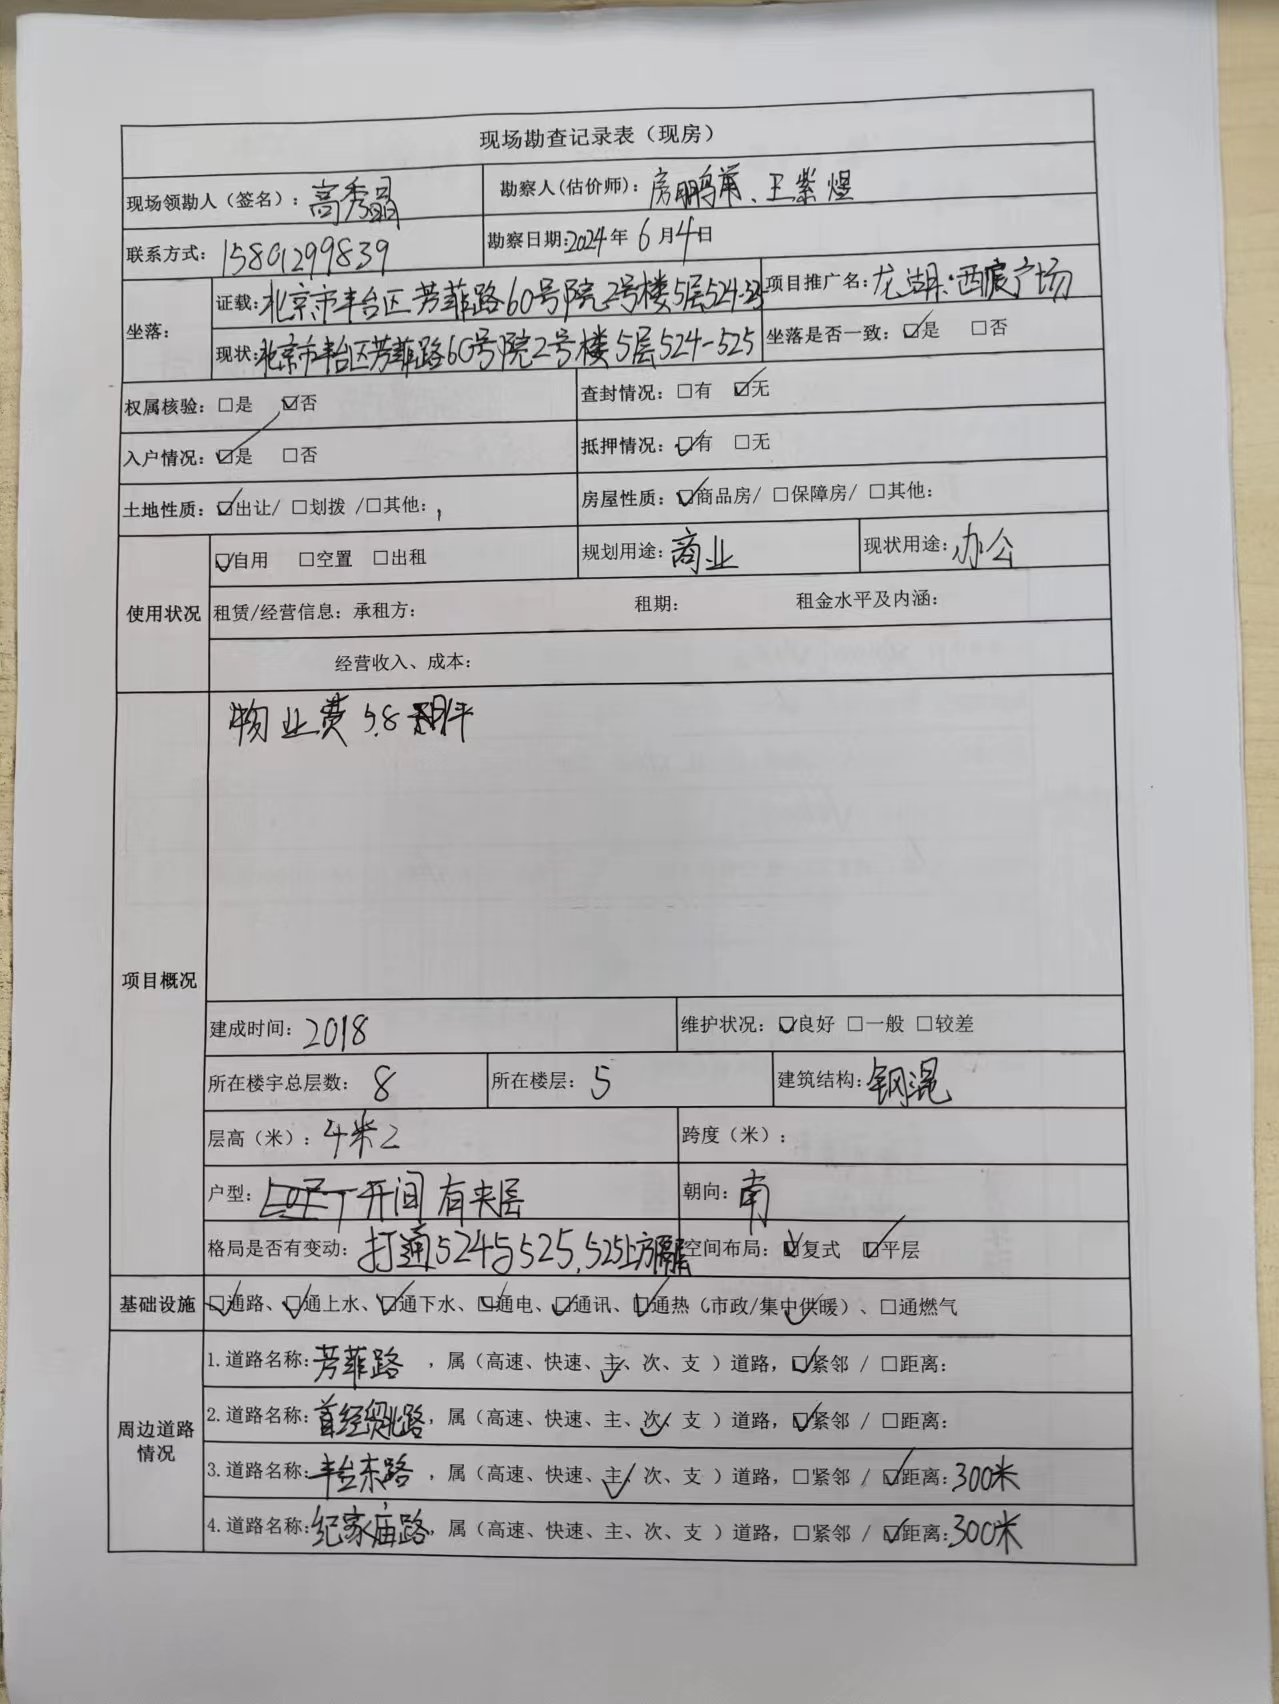 现场勘查记录表（现房）
现场领勘人（签名）：高秀晶 勘察人(估价师)：房鹏 、王紫煜
联系方式：15801299839 勘察日期:2024年 6月4日
坐落： 证载:北京市丰台区芳菲路60号院2号楼5层524-525 项目推广名:龙湖·西宸广场
现状:北京市丰台区芳菲路60号院2号楼5层524-525 坐落是否一致：☑是 □否
权属核验：□是 ☑否 查封情况：□有 ☑无
入户情况：☑是 □否 抵押情况：☑有 □无
土地性质：☑出让/ □划拨 /□其他： 房屋性质：☑商品房/ □保障房/ □其他：
使用状况 ☑自用 □空置 □出租 规划用途：商业 现状用途：办公
租赁/经营信息：承租方： 租期： 租金水平及内涵：
经营收入、成本：
项目概况 物业费5.8 /月/平
建成时间：2018 维护状况：☑良好 □一般 □较差
所在楼宇总层数：8 所在楼层：5 建筑结构：钢混
层高（米）：4米2 跨度（米）：
户型： 开间 有夹层 朝向：南
格局是否有变动：打通524与525,525上方隔层 空间布局：☑复式 ☑平层
基础设施 ☑通路、☑通上水、☑通下水、☑通电、☑通讯、☑通热（市政/集中供暖）、□通燃气
周边道路情况 1.道路名称:芳菲路 ，属（高速、快速、主、次、支 ）道路，☑紧邻 / □距离：
2.道路名称:首经贸北路，属（高速、快速、主、次、支 ）道路，☑紧邻 / □距离：
3.道路名称:丰台东路 ，属（高速、快速、主、次、支 ）道路，□紧邻 / ☑距离：300米
4.道路名称:纪家庙路，属（高速、快速、主、次、支 ）道路，□紧邻 / ☑距离：300米